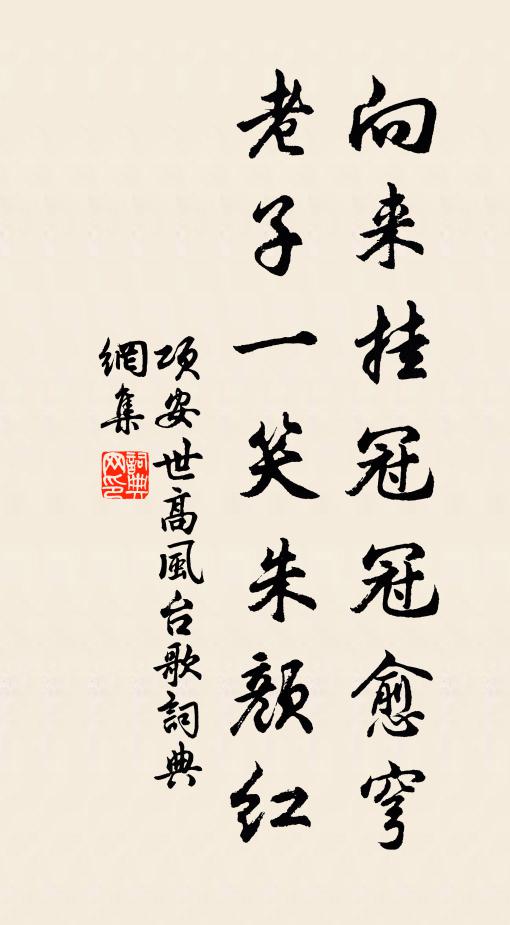 向来挂冠冠愈穹
老子一笑朱顔红
项安世高風台歌詞典
網集
詞典
网印